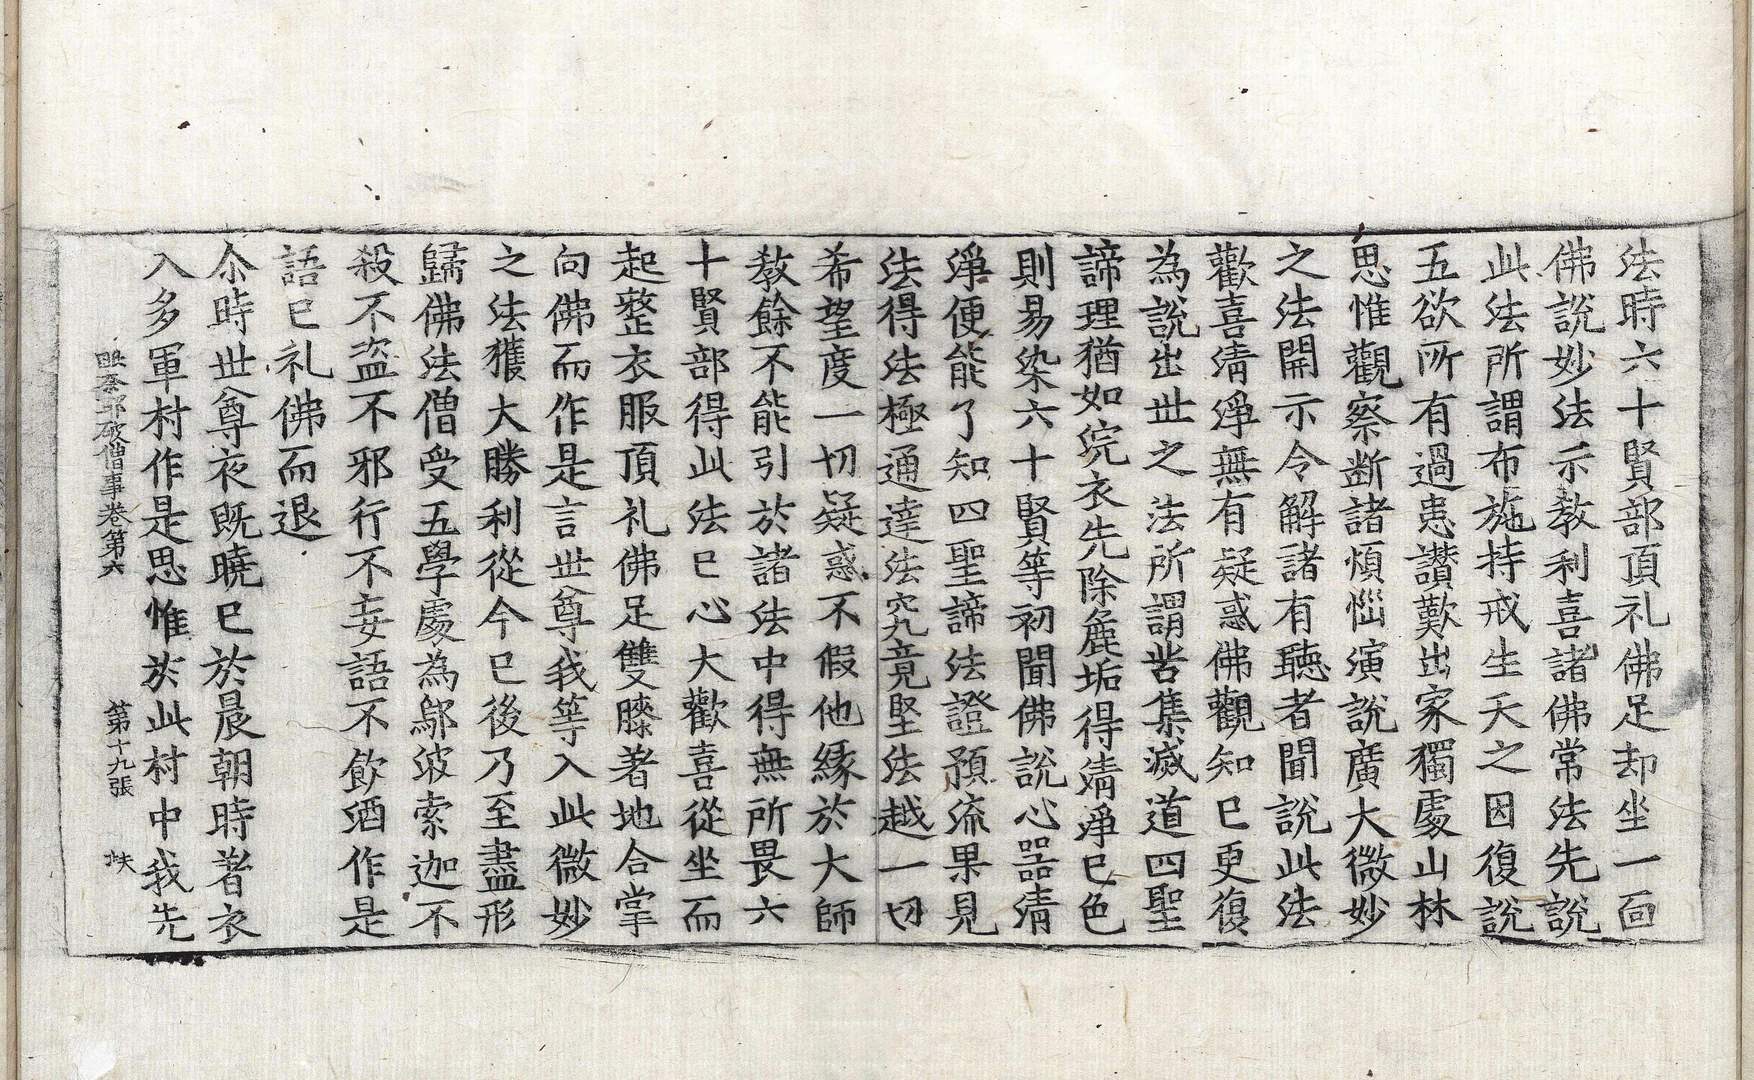 法時六十賢部頂礼佛足却坐一面
佛說妙法示教利喜諸佛常法先說
此法所謂布施持戒生天之因復說
五欲所有過患讚歎出家獨處山林
思惟觀察断諸煩惱演說廣大微妙
之法開示令解諸有聽者聞說此法
歡喜清淨無有疑惑佛觀知已更復
為說出世之法所謂苦集滅道四聖
諦理猶如浣衣先除麁垢得清淨已色
則易染六十賢等初聞佛說心器清
淨便能了知四聖諦法證預流果見
法得法極通達法究竟堅法越一切
希望度一切疑惑不假他緣於大師
教餘不能引於諸法中得無所畏六
十賢部得此法已心大歡喜從坐而
起整衣服頂礼佛足雙膝著地合掌
向佛而作是言世尊我等入此微妙
之法獲大勝利從今已後乃至盡形
歸佛法僧受五學處為鄔波索迦不
殺不盗不邪行不妄語不飲酒作是
語已礼佛而退
尒時世尊夜既曉已於晨朝時著衣
入多軍村作是思惟於此村中我先
毗奈耶破僧事卷第六 第十九張 扶